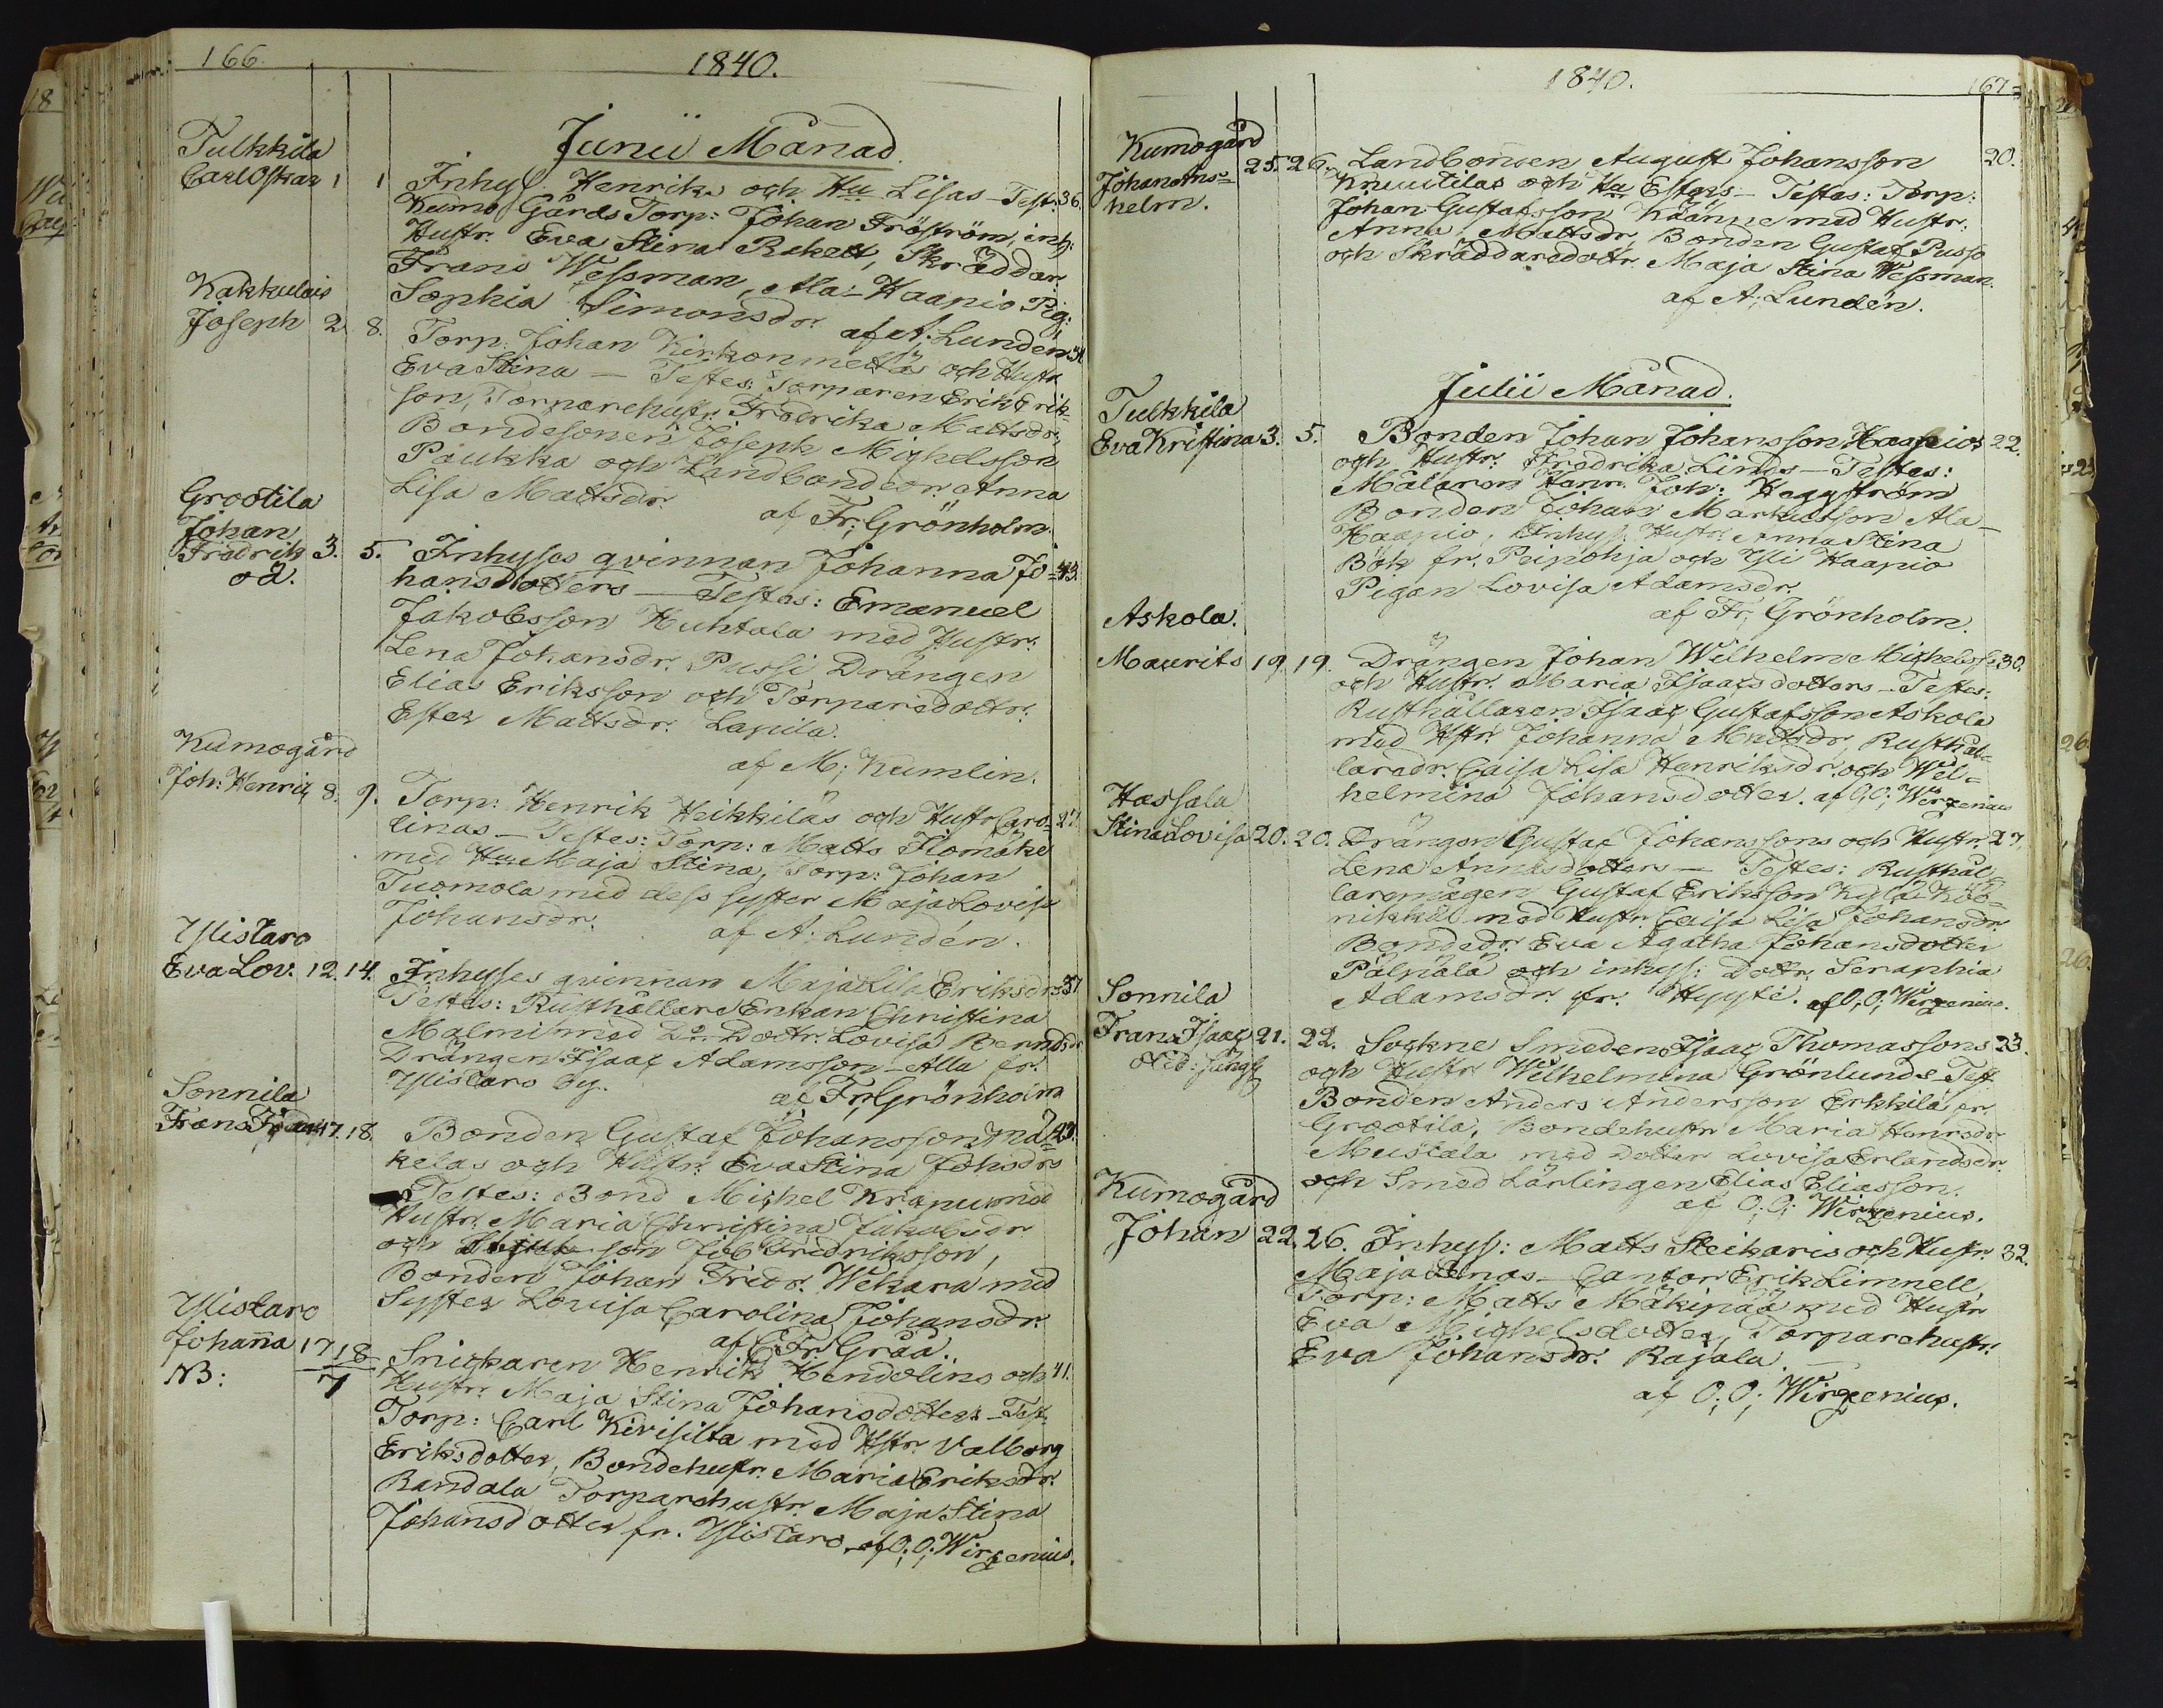 166.
1840.
Junii Månad.
Tulkkila
Carl Oskar 1 1 Inhys. Henriks och Hu Lisas - Test: 36.
Kumo Gårds Torp: Johan Fröström, inh:
Hustr. Eva Stina Rekell, Skräddar.
Frans Wessman, Ala-Haapio Pig:
Sophia Simonsdr. af A: Lundén
Kakkulais
Joseph 2 8. Torp. Johan Kirkonmettäs och Hustr
Eva Stina - Testes: Torparen Erik Erik-
son, Torparehustr. Fredrika Mattsdr,
Bondesonen Joseph Michelsson
Paukka och Landbondedr. Anna
Lisa Mattsdr.
af Fr: Grönholm.
Grootila
Johan
Fredrik 3. 5. Inhyses qvinnan Johanna Jo- 43.
oä.
hansdotters - Testes: Emanuel
Jakobsson Huhtala med Hustr:
Lena Johansdr. Pussi, Drängen
Elias Eriksson och Torparedottr:
Ester Mattsdr. Lapila.
af M; Kumlin.
Kumogård
Joh: Henric 8. 9. Torp: Henrik Heikkiläs och Hustr Caro- 27.
linas - Testes: Torp: Matts Ilomäki
med Hu Maja Stina, Torp: Johan
Tuomola med dess syster Maja Lovisa
Johansdr. af A; Lundén.
Ylistaro
Eva Lov. 12. 14. Inhyses qvinnan Maja Lisa Eriksdrs 37
Testes: Rusthållare Enkan Christina
Malmi med Do Dottr. Lovisa Berndsdr
Drängen Isaac Adamsson - Alla fr.
Ylistaro by.
af Fr; Grönholm
Sonnila
Frans Fredr 17. 18. Bonden Gustaf Johansson
kelas och Hustr. Eva Stina Johsdrs
Testes: Bond Michel Krapu med
Hustr. Maria Christina Jakobsdr.
och son Job Fredriksson,
Bonden Johan Fredr. Wekara med
Syster Lovisa Carolina Johansdr.
af C Fr: Gråå.
Ylistaro
Johana 17 18 Snickaren Henrik Hendelins och 41.
NB: 7 Hustr. Maja Stina Johansdotters - Test.
Torp: Carl Kivisilta med Hstr. Valborg
Eriksdotter, Bondehustr. Maria Eriksdr.
Randala Torparehustr. Maja Stina
Johansdotter fr. Ylistaro. af O; O; Wirzenius.
1840.
167
Kumogård
Johan Wil- 25. 26. Landbonden August Johansson 20.
helm. Knuutilas och Hu Esters - Testes: Torp:
Johan Gustafsson Käänne med Hustr:
Anna Mattsdr, Bonden Gustaf Pusso
och Skräddaredottr. Maja Stina Wessman.
af A; Lundén.
Julii Månad.
Tulkkila
Eva Kristina 3. 5. Bonden Johan Johansson Haapios 22.
och Hustr. Fredrika Linds - Testes:
Målaren Hans Joh: Heggström
Bonden Johan Markusson Ala-
Haapio, Inhys. Hustr. Anna Stina
Böök fr. Peipohja och Yli Haapio
Pigan Lovisa Adamsdr.
af Fr; Grönholm.
Askola.
Maurits 19 19. Drängen Johan Wilhelm Michelss: 30.
och Hustr. Maria Isaacsdotters - Testes:
Rusthållaren Isaac Gustafsson Askola
med Hstr. Johanna Mattsdr, Rusthål-
laredr. Caisa Lisa Henriksdr. och Wil-
helmina Johansdotter. af O; O; Wirzenius
Hassala
Stina Lovisa 20. 20. Drängen Gustaf Johanssons och Hustr. 27.
Lena Annasdotters - Testes: Rusthål-
laremågen Gustaf Eriksson Kylä Köö-
nikkä med Hustr. Caisa Lisa Johansdr.
Bondedr. Eva Agatha Johansdotter
Pälpälä och inhys: Dottr. Seraphia
Adamsdr. fr. Hyyti. af O; O; Wirzenius.
Sonnila
Frans Isaac 21. 22. Sockne Smeden Isaac Thomassons 23.
och Hustr. Wilhelmina Grönlunds - Test.
Bonden Anders Andersson Erkkilä fr.
Grootila, Bondehustr. Maria Henrsdr.
Mustala med dotter Lovisa Erlandsdr
och Smed Lärlingen Elias Eliasson.
af O; O; Wirzenius.
Kumogård
Johan 22. 26. Inhys: Matts Steikaris och Hustr. 32.
Maja Lenas - Cantor Erik Limnell,
Torp: Matts Mäkipää med Hustr
Eva Michelsdotter, Torparehustr.
Eva Johansdr. Rajala. -
af O; O; Wirzenius.